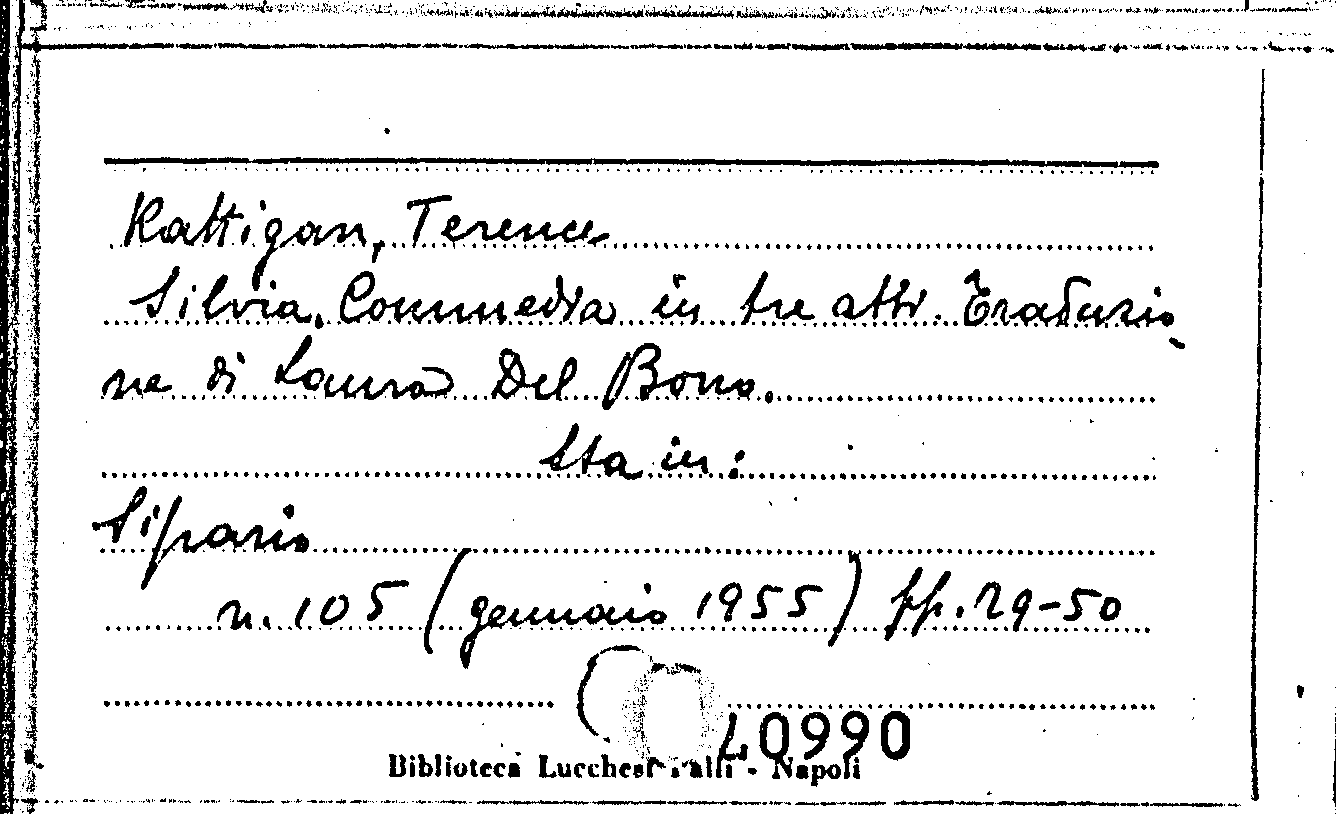 Rattigan, Terence
Silvia. Commedia in tre atti. Traduzio-
ne di Laura Del Bono.
Sta in:
Sipario
n. 105 (gennaio 1955) pp. 29-50
40990
Biblioteca Lucchesi Palli - Napoli